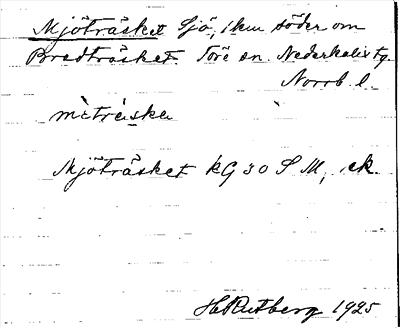 Mjöträsket Sjö, 1 km söder om
Bredträsket. Töre sn. Nederkalix tg.
Norrb. l.
mìtrèska
Mjöträsket kG 30 S M, ek.
H. Rutberg 1925